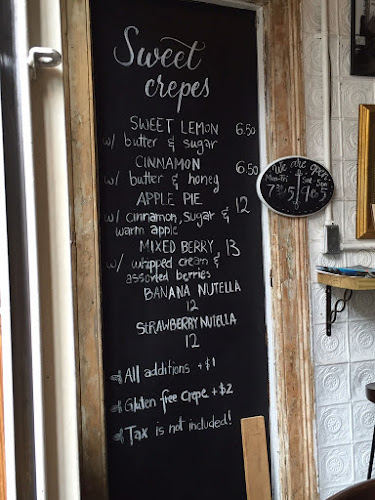 Sweet
crepes
SWEET LEMON 6.50
w/ butter & sugar
CINNAMON 6.50
w/ butter & honey
APPLE PIE
w/ cinnamon, sugar & 12
warm apple
MIXED BERRY 13
w/ whipped cream &
assorted berries
BANANA NUTELLA
12
STRAWBERRY NUTELLA
12
All additions +$1
Gluten free Crepe +$2
Tax is not included!
We are open
Mon-Fri